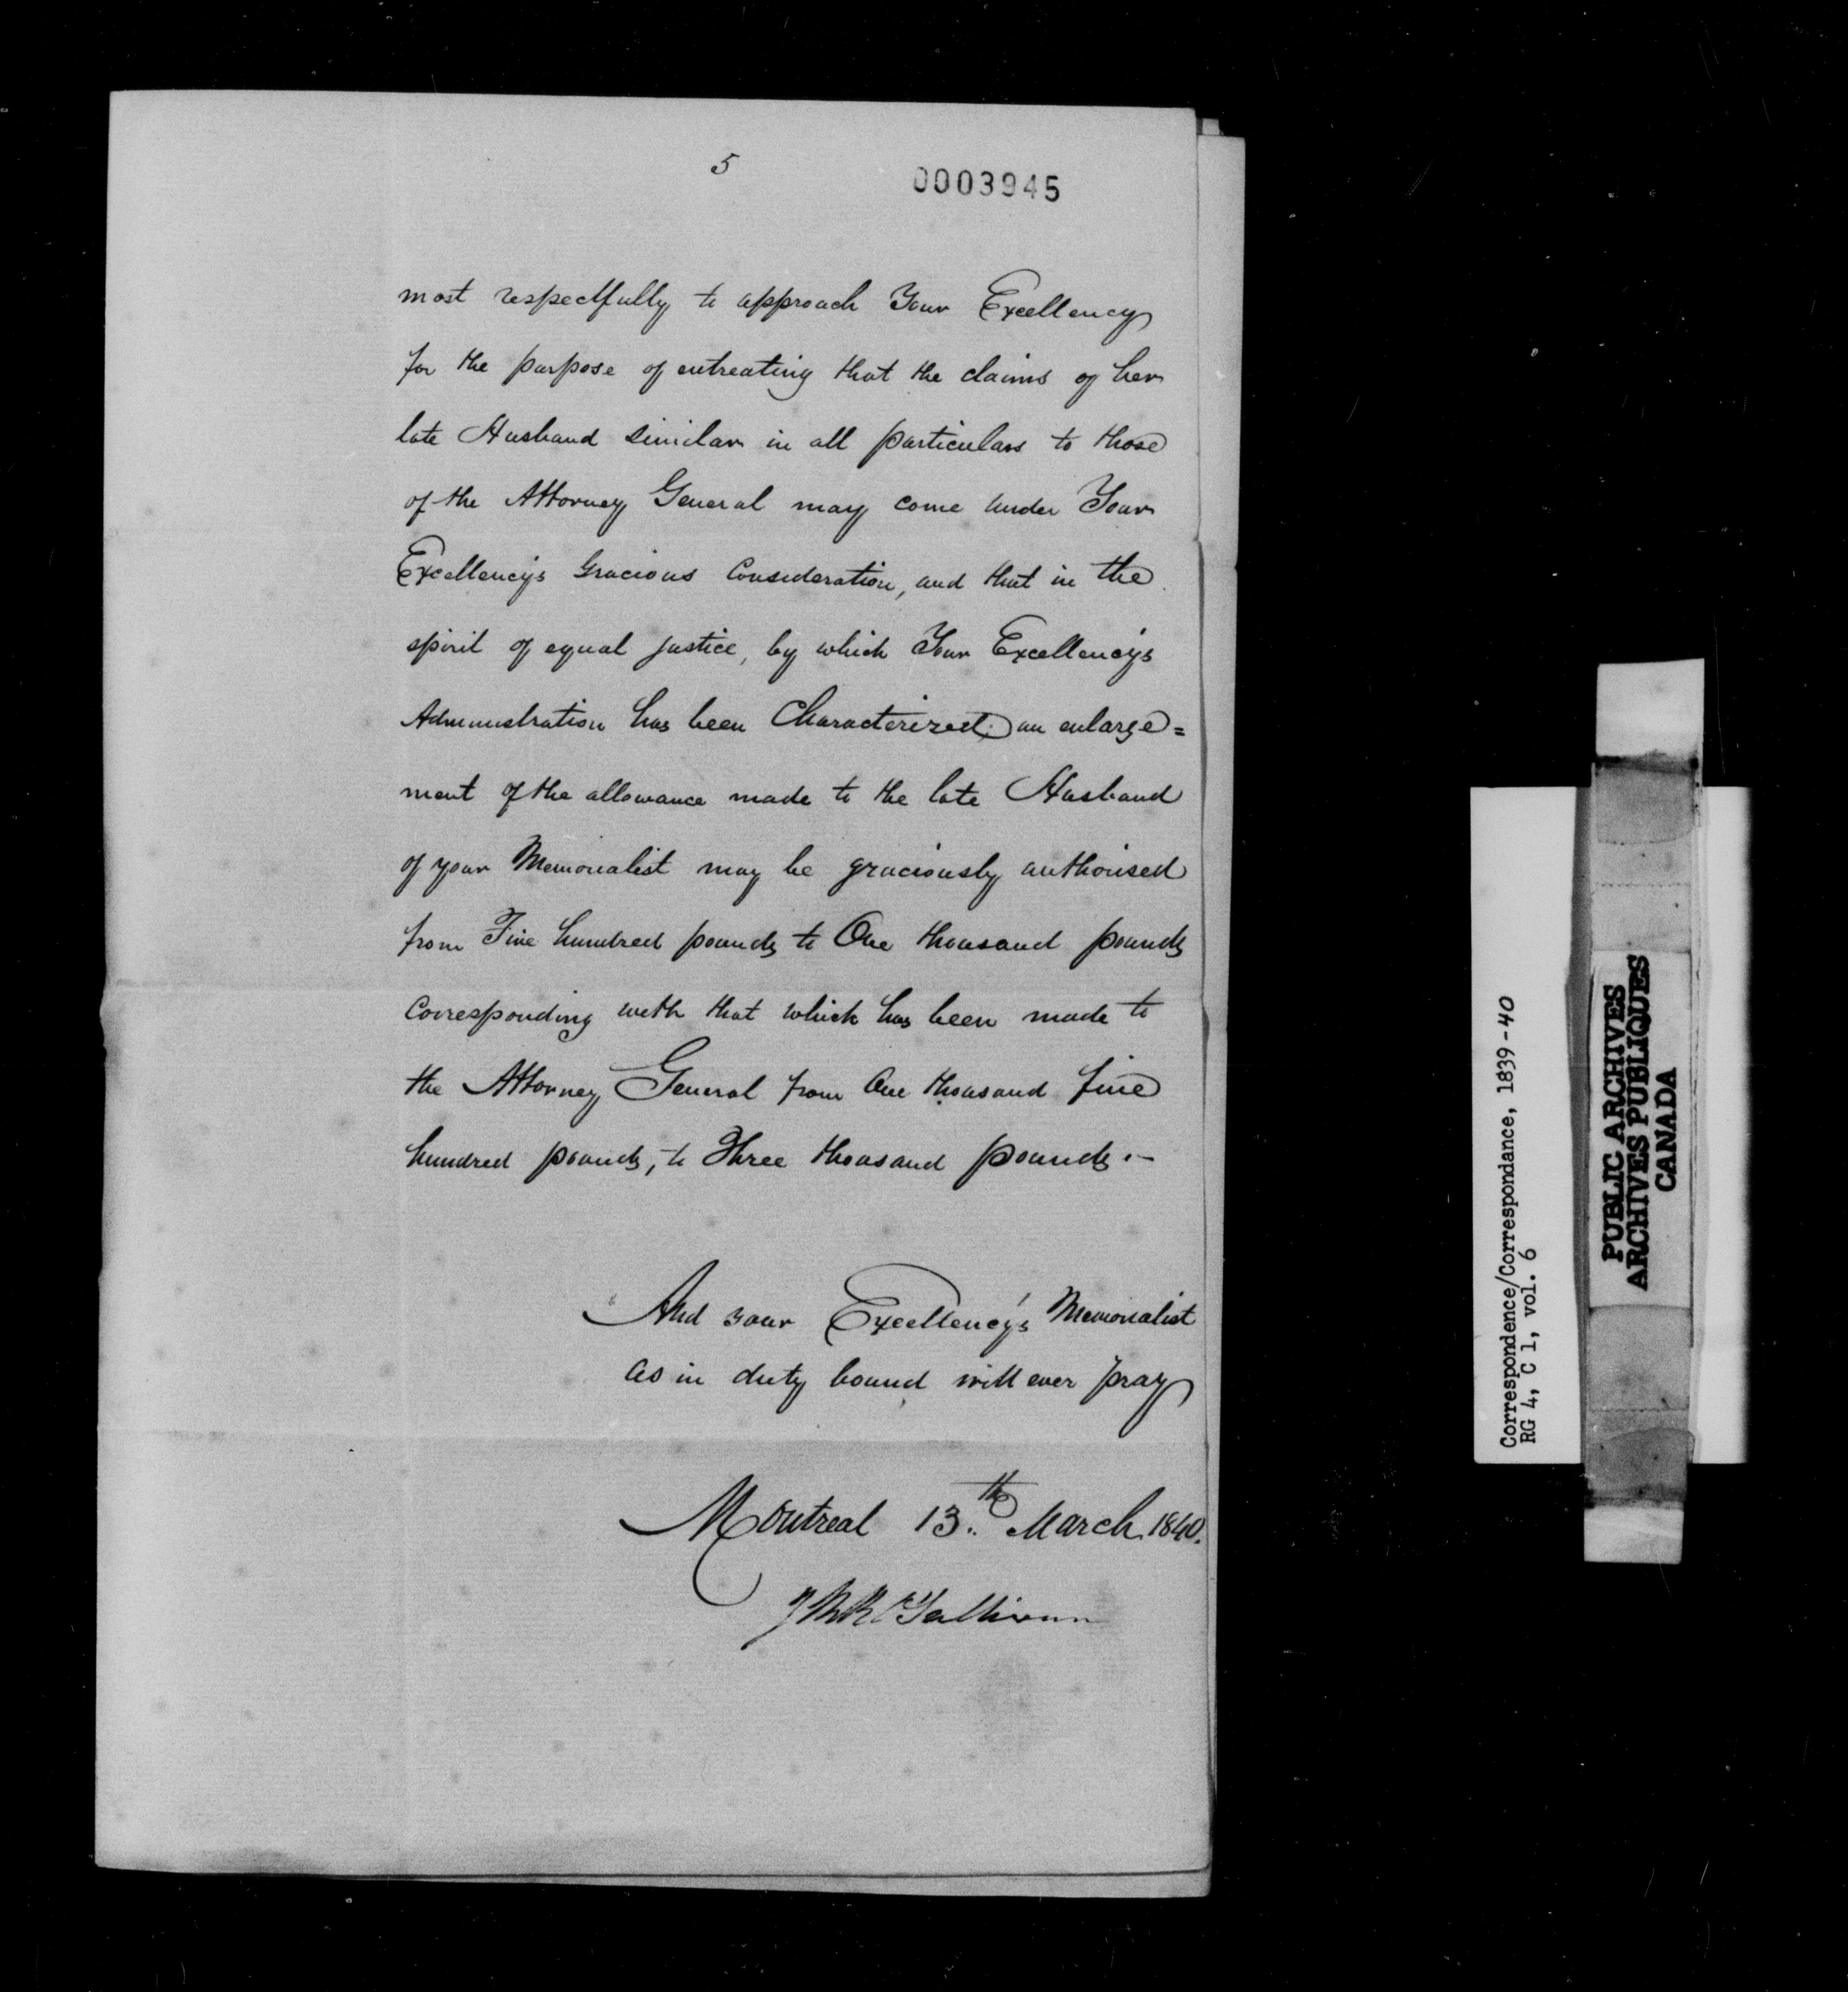 5
0003945
most respectfully to approach Your Excellency
for the purpose of entreating that the claims of her
late Husband similar in all particulars to those
of the Attorney General may come under Your
Excellency's Gracious Consideration, and that in the
spirit of equal justice, by which Your Excellency's
Administration has been Characterized an enlarge=
ment of the allowance made to the late Husband
of your Memorialist may be graciously authorised
from Five hundred pounds to One thousand pounds
Corresponding with that which has been made to
the Attorney General from One thousand five
hundred pounds, to Three thousand pounds.—
And your Excellency's Memorialist
as in duty bound will ever pray
Montreal 13th March 1840.
Correspondence/Correspondance, 1839-40
RG 4, C 1, vol. 6
PUBLIC ARCHIVES
ARCHIVES PUBLIQUES
CANADA